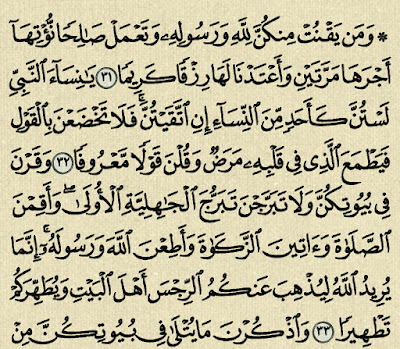 ۞ وَمَن يَقْنُتْ مِنكُنَّ لِلَّهِ وَرَسُولِهِۦ وَتَعْمَلْ صَـٰلِحًا نُّؤْتِهَآ
أَجْرَهَا مَرَّتَيْنِ وَأَعْتَدْنَا لَهَا رِزْقًا كَرِيمًا ٣١ يَـٰنِسَآءَ ٱلنَّبِىِّ
لَسْتُنَّ كَأَحَدٍ مِّنَ ٱلنِّسَآءِ إِنِ ٱتَّقَيْتُنَّ ۚ فَلَا تَخْضَعْنَ بِٱلْقَوْلِ
فَيَطْمَعَ ٱلَّذِى فِى قَلْبِهِۦ مَرَضٌ وَقُلْنَ قَوْلًا مَّعْرُوفًا ٣٢ وَقَرْنَ
فِى بُيُوتِكُنَّ وَلَا تَبَرَّجْنَ تَبَرُّجَ ٱلْجَـٰهِلِيَّةِ ٱلْأُولَىٰ ۖ وَأَقِمْنَ
ٱلصَّلَوٰةَ وَءَاتِينَ ٱلزَّكَوٰةَ وَأَطِعْنَ ٱللَّهَ وَرَسُولَهُۥٓ ۚ إِنَّمَا
يُرِيدُ ٱللَّهُ لِيُذْهِبَ عَنكُمُ ٱلرِّجْسَ أَهْلَ ٱلْبَيْتِ وَيُطَهِّرَكُمْ
تَطْهِيرًا ٣٣ وَٱذْكُرْنَ مَا يُتْلَىٰ فِى بُيُوتِكُنَّ مِنْ